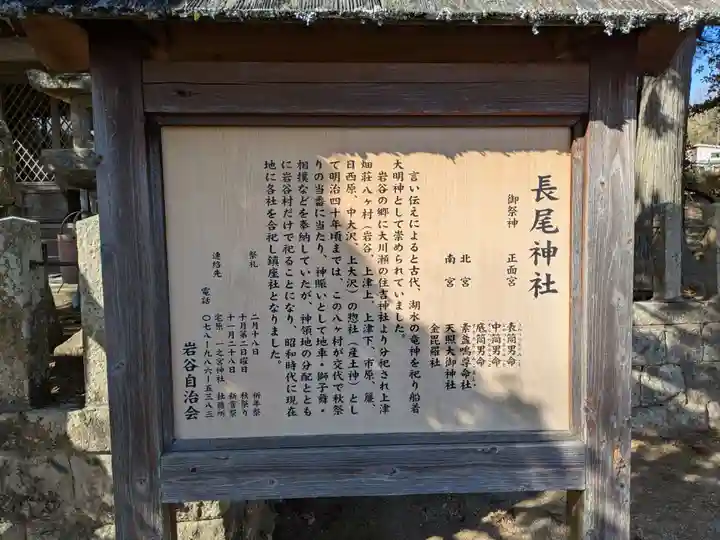 長尾神社
御祭神 正面宮 表筒男命
中筒男命
底筒男命
北宮 素盞鳴尊命社
南宮 天照大御神社
金毘羅社
言い伝えによると古代、湖水の竜神を祀り船着
大明神として崇められていました。
岩谷の郷に大川瀬の住吉神社より分祀され上津
畑荘八ヶ村（岩谷、上津上、上津下、市原、簾、
日西原、中大沢、上大沢）の惣社（産土神）とし
て明治四十年頃までは、この八ヶ村が交代で秋祭
りの当番に当たり、神賑いとして地車・獅子舞・
相撲などを奉納していたが、神領地の分配ととも
に岩谷村だけで祀ることになり、昭和時代に現在
地に各社を合祀し鎮座社となりました。
祭礼 二月十八日 祈年祭
十月第二日曜日 秋祭り
十一月二十八日 新嘗祭
連絡先 宅原 一之宮神社 社務所
電話 〇七八-九八六-五三八三
岩谷自治会